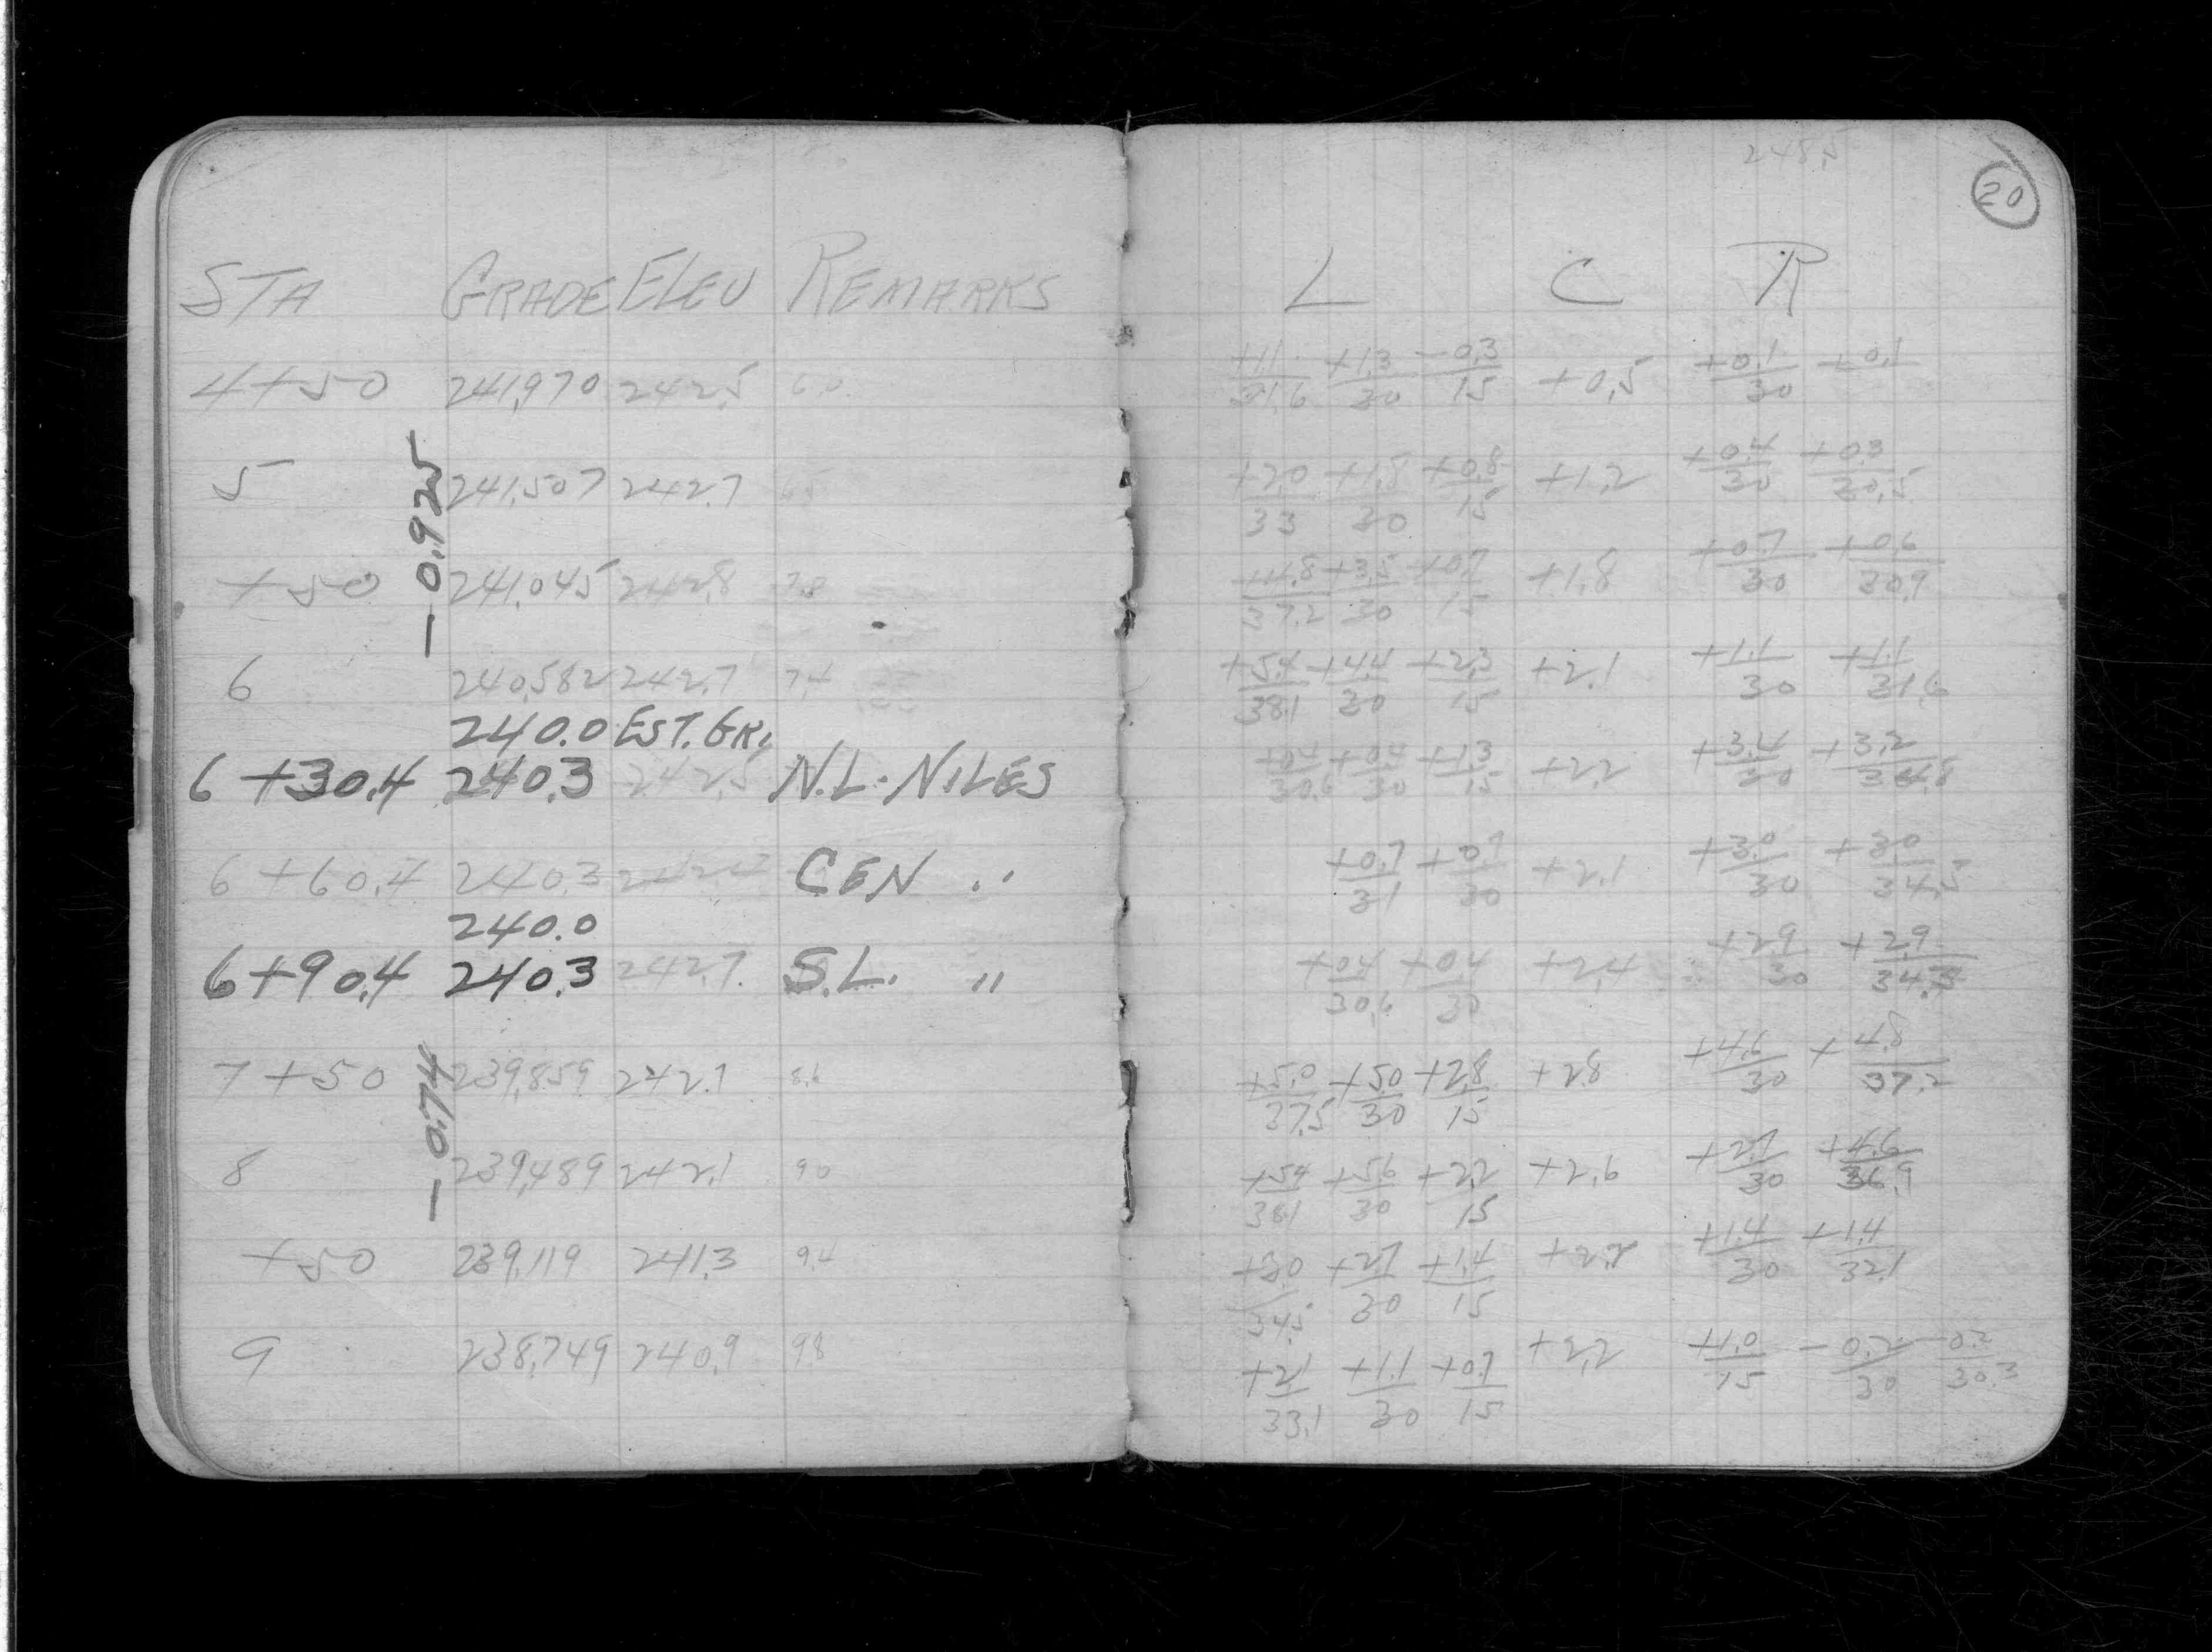 STA GRADE ELEV REMARKS
4+50 241.970 242.5 6.0
5 241.507 242.7
- 0.925
+50 241.045 242.8 7.8
6 240.582 242.7 7.4
240.0 EST. GR.
6+30.4 240.3 242.5 N.L. NILES
6+60.4 240.3 CEN "
240.0
6+90.4 240.3 242.7 S.L. "
7+50 239.859 242.7 8.6
- 0.74
8 239.489 242.1 9.0
+50 239.119 241.3 9.4
9 238.749 240.9 9.8
248.5
20
L C R
+1.1 +1.3 -0.3 +0.5 +0.1 +0.1
31.6 30 15 30
+2.0 +1.8 +0.8 +1.2 +0.4 +0.3
33 30 15 30 30.5
+4.8 +3.5 +0.7 +1.8 +0.7 +0.6
37.2 30 15 30 30.9
+5.4 +4.4 +2.3 +2.1 +1.1 +1.1
38.1 30 15 30 31.6
+0.4 +0.4 +1.3 +2.2 +3.4 +3.2
30.6 30 15 30 34.8
+0.7 +0.7 +2.1 +3.0 +3.0
31 30 30 34.5
+0.4 +0.4 +2.4 +2.9 +2.9
30.6 30 30
+5.0 +5.0 +2.8 +2.8 +4.6 +4.8
37.5 30 15 30 37.2
+5.4 +5.6 +2.2 +2.6 +2.7 +4.6
38.1 30 15 30 36.9
+3.0 +2.7 +1.4 +2.2 +1.4 +1.4
34.5 30 15 30 32.1
+2.1 +1.1 +0.7 +2.2 +1.0 -0.2 -0.2
33.1 30 15 15 30 30.3